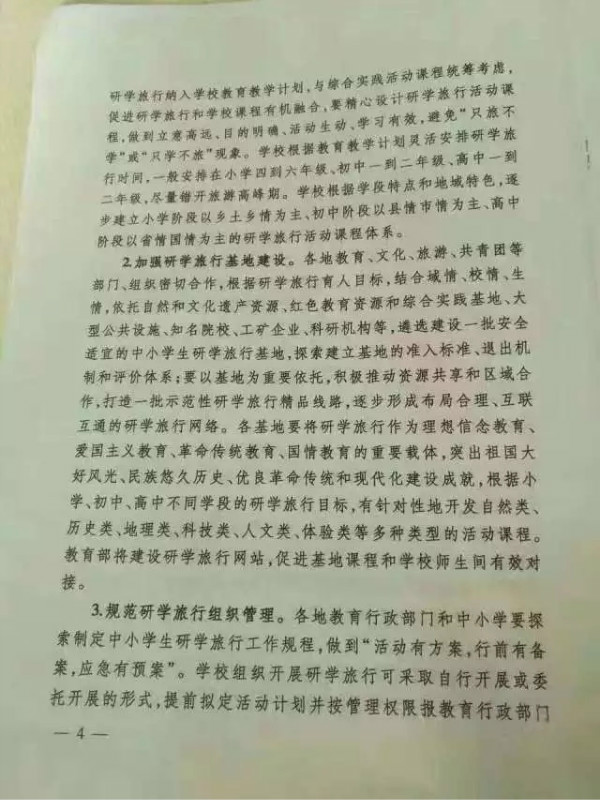 研学旅行纳入学校教育教学计划,与综合实践活动课程统筹考虑,
促进研学旅行和学校课程有机融合,要精心设计研学旅行活动课
程,做到立意高远、目的明确、活动生动、学习有效,避免“只旅不
学”或“只学不旅”现象。学校根据教育教学计划灵活安排研学旅
行时间,一般安排在小学四到六年级、初中一到二年级、高中一到
二年级,尽量错开旅游高峰期。学校根据学段特点和地域特色,逐
步建立小学阶段以乡土乡情为主、初中阶段以县情市情为主、高中
阶段以省情国情为主的研学旅行活动课程体系。
2.加强研学旅行基地建设。各地教育、文化、旅游、共青团等
部门、组织密切合作,根据研学旅行育人目标,结合域情、校情、生
情,依托自然和文化遗产资源、红色教育资源和综合实践基地、大
型公共设施、知名院校、工矿企业、科研机构等,遴选建设一批安全
适宜的中小学生研学旅行基地,探索建立基地的准入标准、退出机
制和评价体系;要以基地为重要依托,积极推动资源共享和区域合
作,打造一批示范性研学旅行精品线路,逐步形成布局合理、互联
互通的研学旅行网络。各基地要将研学旅行作为理想信念教育、
爱国主义教育、革命传统教育、国情教育的重要载体,突出祖国大
好风光、民族悠久历史、优良革命传统和现代化建设成就,根据小
学、初中、高中不同学段的研学旅行目标,有针对性地开发自然类、
历史类、地理类、科技类、人文类、体验类等多种类型的活动课程。
教育部将建设研学旅行网站,促进基地课程和学校师生间有效对
接。
3.规范研学旅行组织管理。各地教育行政部门和中小学要探
索制定中小学生研学旅行工作规程,做到“活动有方案,行前有备
案,应急有预案”。学校组织开展研学旅行可采取自行开展或委
托开展的形式,提前拟定活动计划并按管理权限报教育行政部门
— 4 —